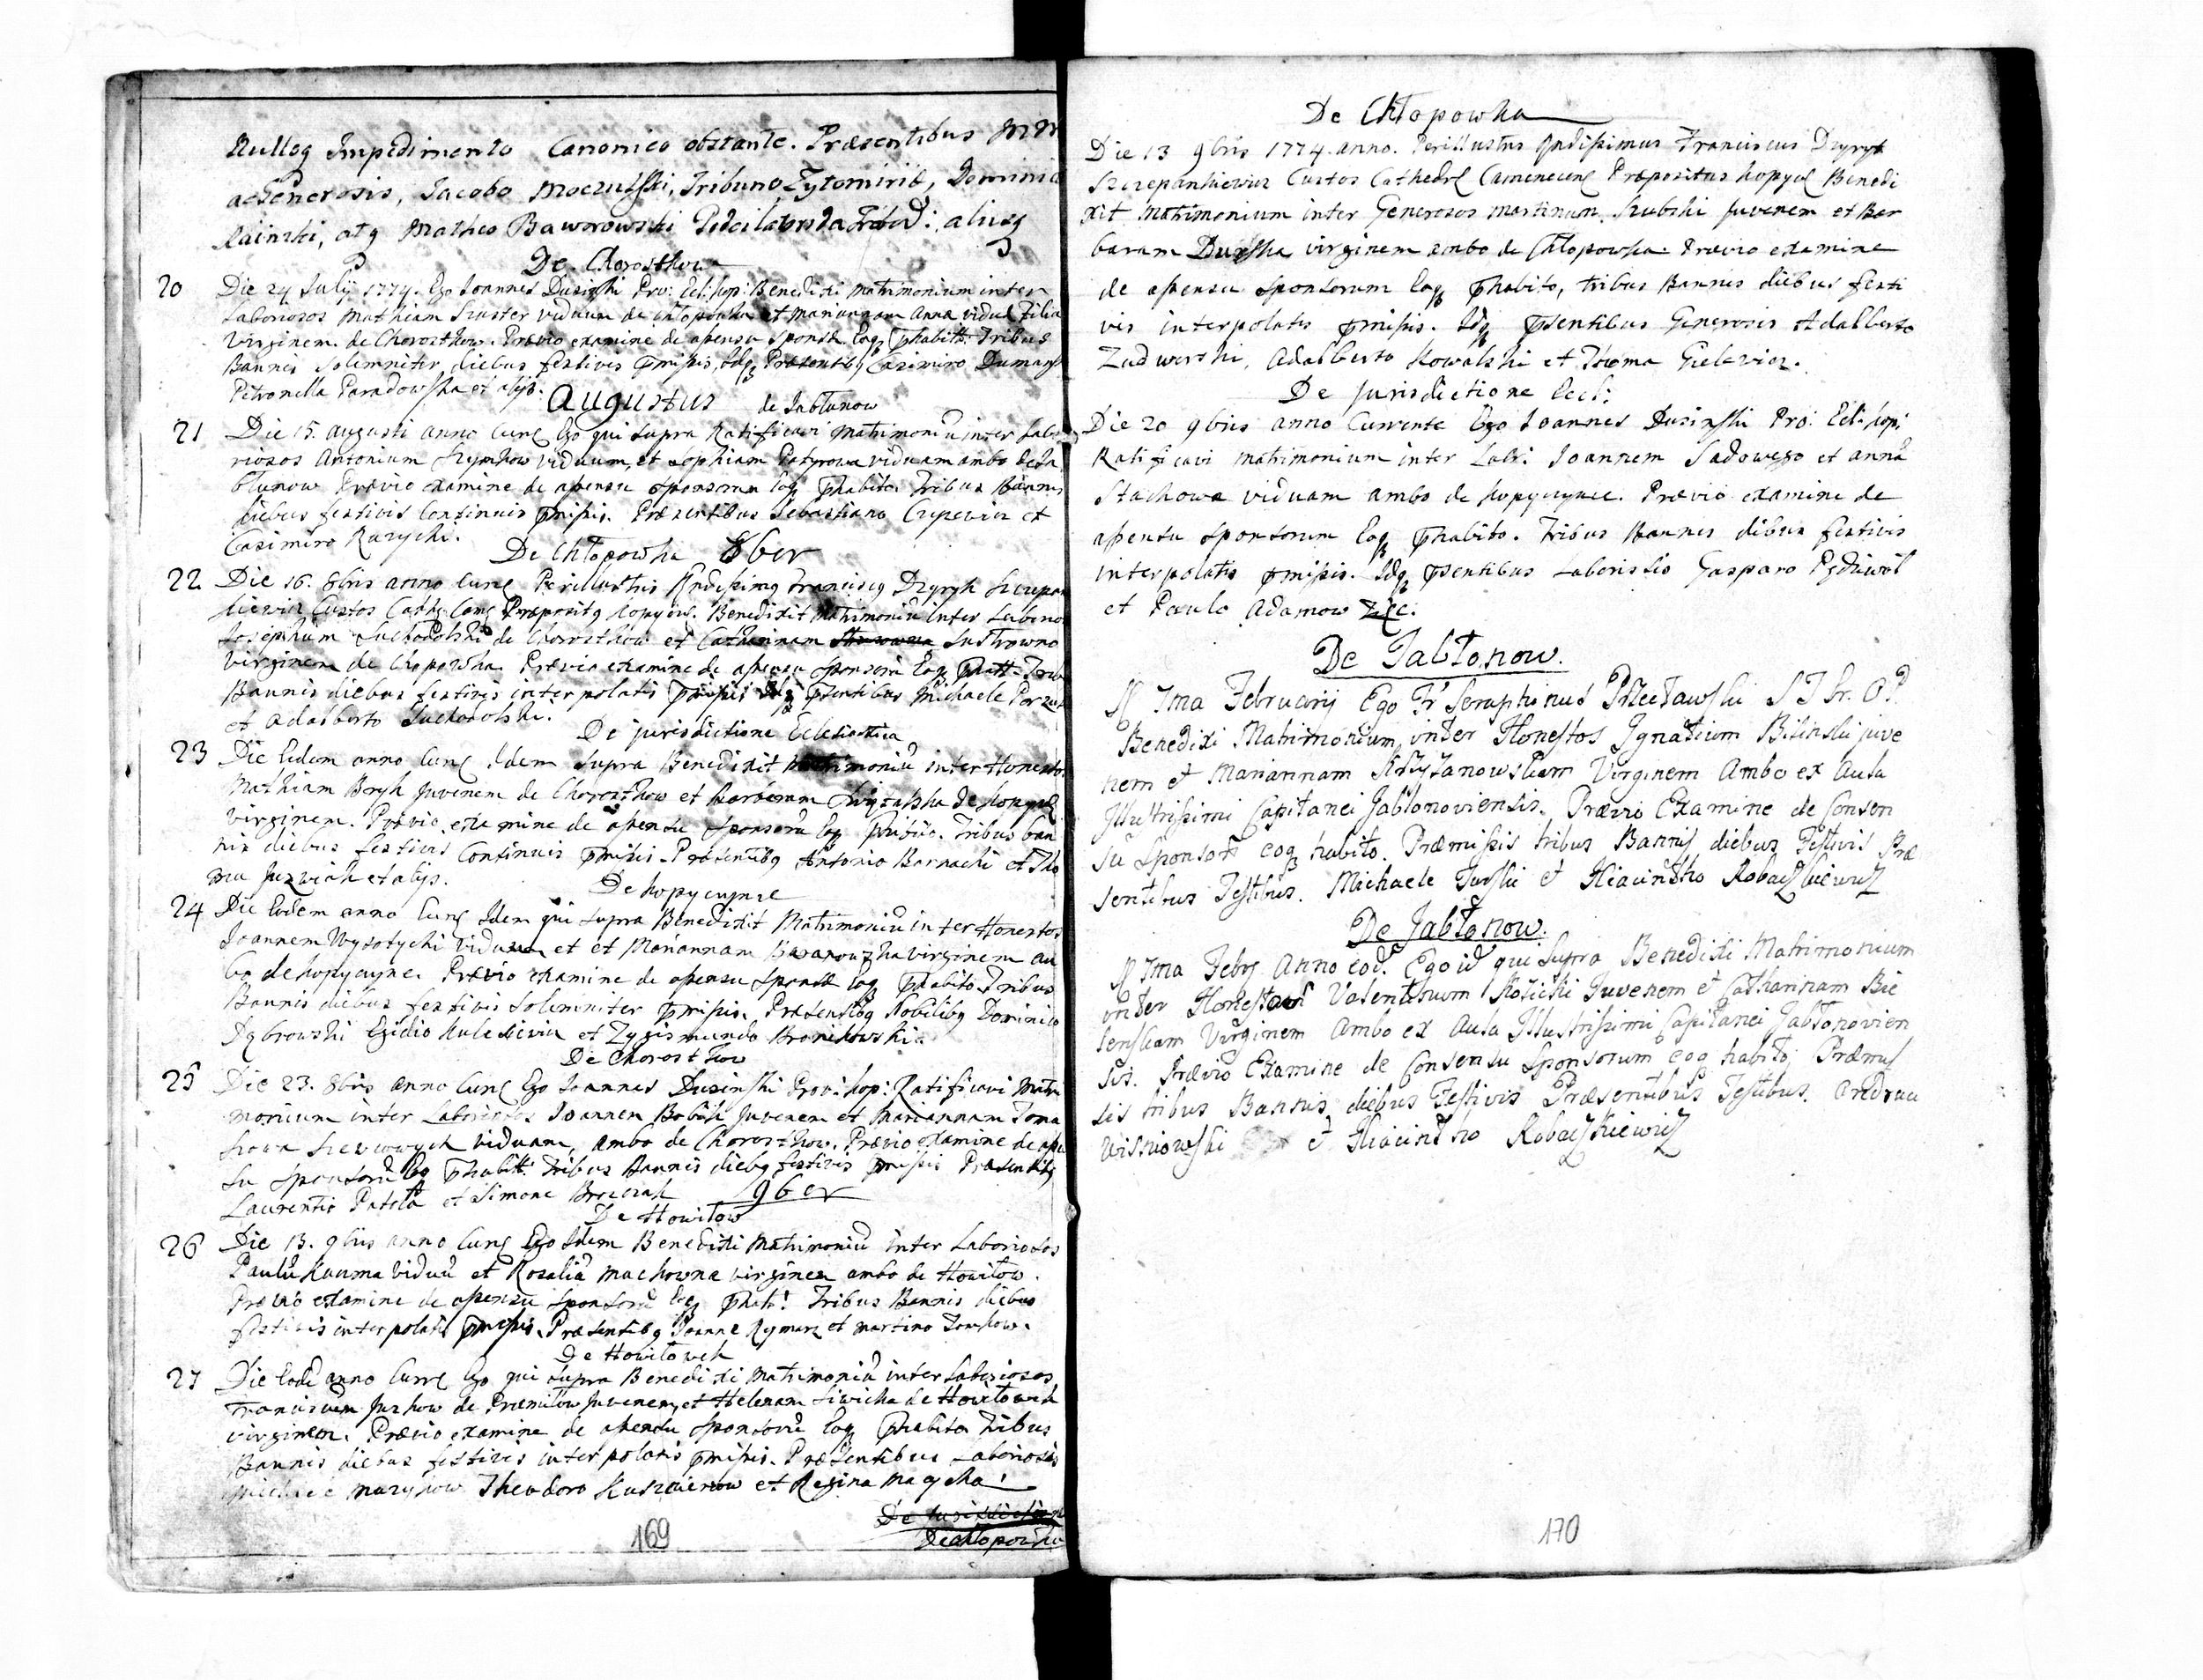 Nullog Impedimento Canonico obstante. Præsentibus
ac Generosis, Jacobo Moczulski, Tribuno Zytomiriæ, Dominic
Rainski, atq Matheo Baworowski aliisq
De Chorosthow
20 Die 24 Julij 1774. Ego Joannes Dusinski Pro: Ecl: kop: Benedixi matrimonium inter
Laboriosos Mathiam Szuster viduum de Chłopowka et Mariannam Anna viduæ Filia
Virginem de Chorosthow. Prævio examine de assensu Spons. eoq phabito. Tribus
Bannis Solemniter diebus festivis pmissis, Idq Præsentibq Casimiro Dumansk
Petronella Paradowska et alijs.
Augustus de Jabłonow
21 Die 15. augusti anno Curr Ego qui supra Ratificavi Matrimoniū inter Labo
riosos Antonium Szymkow viduum, et Sophiam viduam ambo de Ja
błunow Prævio examine de assensu sponsorum eoq phabito. Tribus Bannis
diebus festivis Continuis pmissis. Præsentibus Sebastiano et
Casimiro Karychi.
De Chłopowka 8ber
22 Die 16. 8bris anno Curr Perillustris Rndissimq Franciscq Dzyryk Szczepan
kiewicz Custos Cath: Cam Præpositq kopyc. Benedixit Matrimoniū inter Laborio
Josephum Suchodolski de Chorosthow et Catharinam Sustrowno
Virginem de Chłopowka. Prævio examine de assensu sponsorū eoq phabit. Trib
Bannis diebus festivis interpolatis pmissis Idq psentibus Michaele
et Adalberto Suchodolski.
De jurisdictione Eclesiastica
23 Die Eadem anno Curr Idem supra Benedixit Matrimoniū inter Honesto
Mathiam Bryk Juvenem de Chorosthow et Barbaram de kopyc
virginem. Prævio examine de assensu sponsorū eoq phabito. Tribus ban
nis diebus festivis Continuis pmissis. Præsentibq Antonio Barnachi et Tho
ma Juzwiak et alijs.
De kopycynce
24 Die Eodem anno Curr Idem qui supra Benedixit Matrimoniū inter Honestos
Joannem Wysotychi viduum et et Mariannam virginem am
bo de kopycynce. Prævio examine de assensu spons. eoq phabito Tribus
Bannis diebus festivis Solemniter pmissis. Præsentibq Nobilibq Dominico
Dąbrowski Egidio et Zygismundo Bronikowski.
De Chorosthow
25 Die 23. 8bris anno Curr Ego Joannes Dusinski Pro: kop: Ratificavi Matri
monium inter Laboriosos Joannem Babiik Juvenem et Mariannam Toma
szowa viduam, ambo de Chorosthow. Prævio examine de asse
su sponsorū eoq phabit. Tribus Bannis diebq festivis pmissis Præsentibq
Laurentio Patoła et Simone Brzezak 9ber
De Howiłow
26 Die 13. 9bris anno Curr Ego Idem Benedixi Matrimoniū inter Laboriosos
Paulū Kauma Viduū et Rosaliā Machowna virginem ambo de Howiłow.
Prævio examine de assensu sponsorū eoq phab: Tribus Bannis diebus
festivis interpolatis pmissis. Præsentibq Joanne Rymarz et Martino Tomkow.
De Howiłowek
27 Die Eadē anno Curr Ego qui supra Benedixi Matrimoniū inter Laboriosos
Franciscum Juzkow de Præmiłow Juvenem, et Helenam Siwicka de Howiłowek
virginem. Prævio examine de assensu sponsorū eoq phabito Tribus
Bannis diebus festivis interpolatis pmissis. Præsentibus Laboriosis
Michaele Mazykow Theodoro Kusznierow et Regina
De jurisdictione
De Chłopowka
169
De Chłopowka
Die 13 9bris 1774. anno. Perillustris Rndissimus Franciscus Dzyryk
Szczepankiewicz Custos Cathedr Camenecen Præpositus kopyc Benedi
xit Matrimonium inter Generosos Martinum Szubski Juvenem et Bar
baram virginem ambo de Chłopowka. Prævio examine
de assensu sponsorum eoq phabito, tribus Bannis diebus festi
vis interpolatis pmissis. Idq psentibus Generosis Adalberto
Zadwirski, Adalberto Kowalski et Thoma Gielewicz.
De Jurisdictione Eccl:
Die 20 9bris anno Currente Ego Joannes Dusinski Pro: Ecl: kop:
Ratificavi Matrimonium inter Labr: Joannem Sadowego et annā
Stachowa viduam ambo de kopycynce. Prævio examine de
assensu sponsorum eoq phabito. Tribus Bannis diebus festivis
interpolatis pmissis. Idq psentibus Gasparo
et Paulo Adamow
De Jabłonow.
Ima February Ego Fr Seraphinus Przecławski S T Lr. O.P.
Benedixi Matrimonium inter Honestos Ignatium Bilinski juve
nem et Mariannam Krzyżanowskam Virginem Ambo ex Aula
Illustrissimi Capitanei Jablonoviensis. Prævio Examine de Consen
sū Sponsorū eoq habito. Præmissis tribus Bannis diebus Festivis Præ
sentibus Testibus. Michaele Turski et Hiacintho Robaszkiewicz
De Jabłonow.
Ima Febry Anno eod. Ego id qui supra Benedixi Matrimonium
inter Honestos Valentinum Rosicki Juvenem et Catharinam Bie
lenskam Virginem Ambo ex Aula Illustrissimi Capitanei Jabłonovien
sis. Prævio Examine de Consensu Sponsorum eoq habito. Præmis
sis tribus Bannis diebus Festivis Præsentibus Testibus. Andræa
Wisniowski et Hiacintho Robaszkiewicz
170